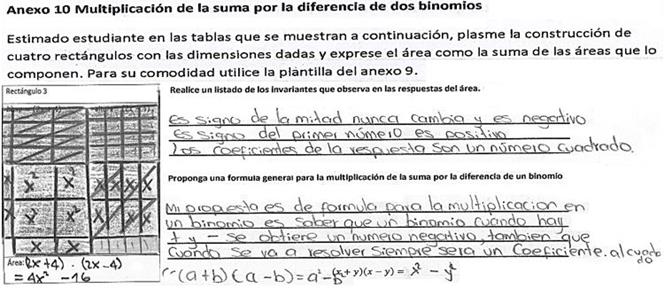 Anexo 10 Multiplicación de la suma por la diferencia de dos binomios
Estimado estudiante en las tablas que se muestran a continuación, plasme la construcción de
cuatro rectángulos con las dimensiones dadas y exprese el área como la suma de las áreas que lo
componen. Para su comodidad utilice la plantilla del anexo 9.
Rectángulo 3
x² x²
x² x²
x x
Área: (2x+4) · (2x-4)
= 4x² -16
Realice un listado de los invariantes que observa en las respuestas del área.
Es signo de la mitad nunca cambia y es negativo
Es signo del primer número es positivo
Los coeficientes de la respuesta son un número cuadrado.
Proponga una formula general para la multiplicación de la suma por la diferencia de un binomio
Mi propuesta es de formula para la multiplicacion en
un binomio es saber que un binomio cuando hay
+ y - se obtiene un numero negativo, tambien que
cuando se va a resolver siempre sera un coeficiente. al cuadrado
(a+b)(a-b)=a²-b² (x+y)(x-y) = x² - y²